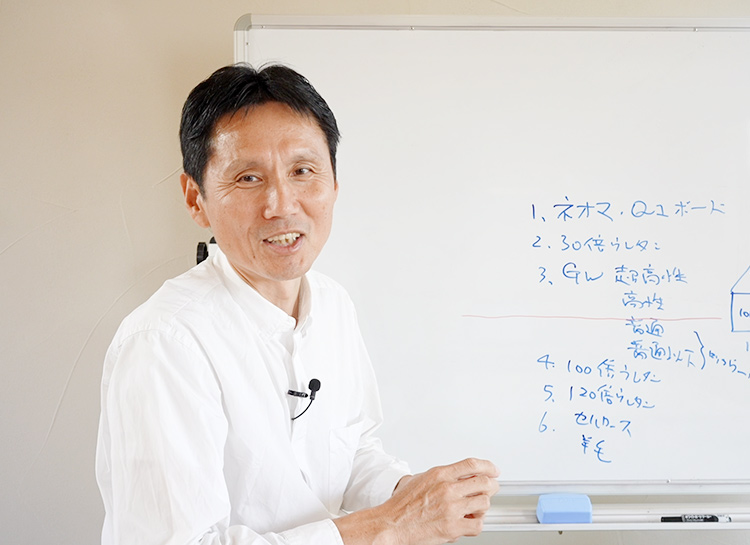 1、ネオマ・Q1ボード
2. 30倍ウレタン
3、GW 超高性
高性
普通
普通以下
4. 100倍ウレタン
5. 120倍ウレタン
6. セルロース
羊毛
10